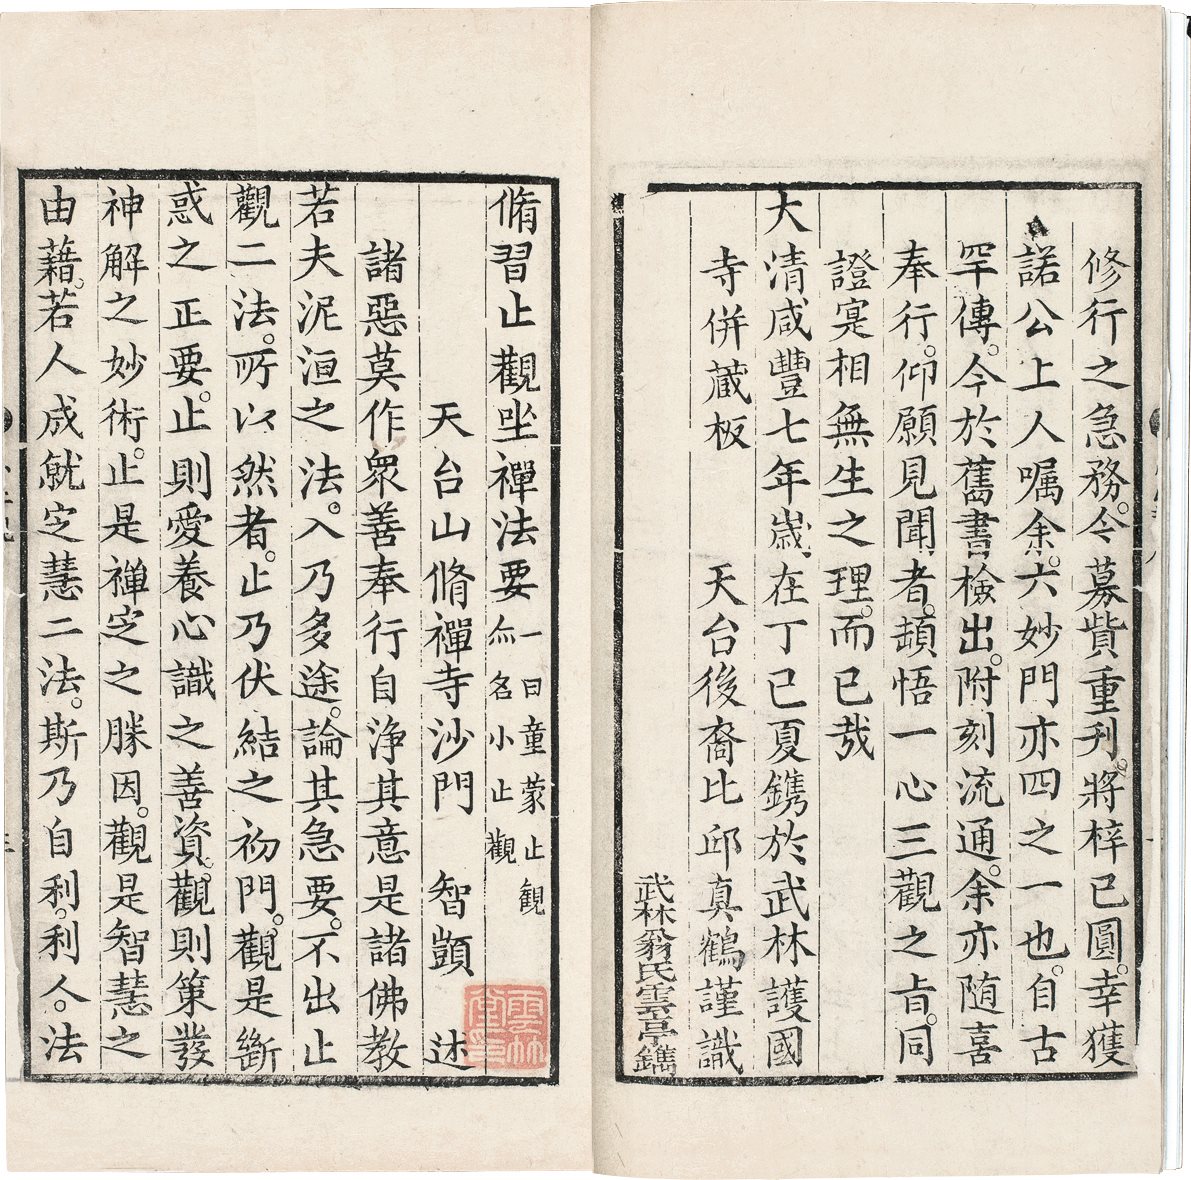 修行之急務。今募貲重刋。將梓已圓。幸獲
諾公上人囑余。六妙門亦四之一也。自古
罕傳。今於舊書檢出。附刻流通。余亦随喜
奉行。仰願見聞者。頓悟一心三觀之旨。同
證寔相無生之理。而已哉
大清咸豐七年歲在丁巳夏鐫於武林護國
寺併藏板　天台後裔比邱真鶴謹識
武林翁氏雲亭鐫
脩習止觀坐禪法要 一曰童蒙止観
亦名小止觀
天台山脩禪寺沙門　智顗　述
諸惡莫作衆善奉行自淨其意是諸佛教
若夫泥洹之法。入乃多途。論其急要。不出止
觀二法。所以然者。止乃伏結之初門。觀是斷
惑之正要。止則愛養心識之善資。觀則策發
神解之妙術。止是禪定之勝因。觀是智慧之
由藉。若人成就定慧二法。斯乃自利。利人。法
雲林堂